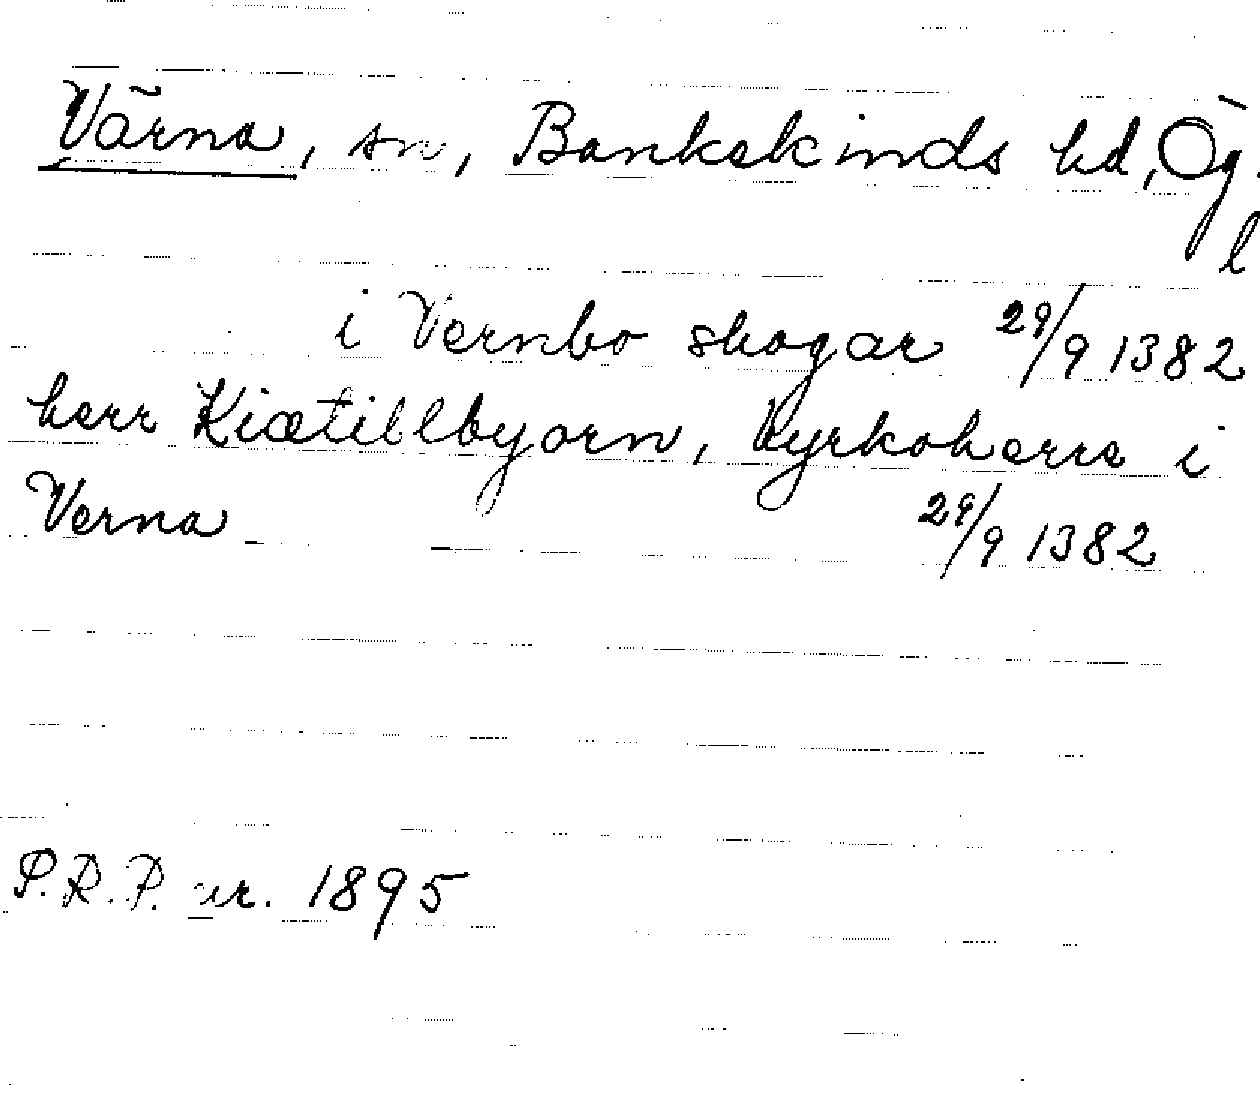 Värna, sn, Bankekinds hd, Ög.
l
i Vernbo skogar 29/9 1382
herr Kiætillbyorn, kyrkoherre i
Verna 29/9 1382
S.R.P. nr. 1895